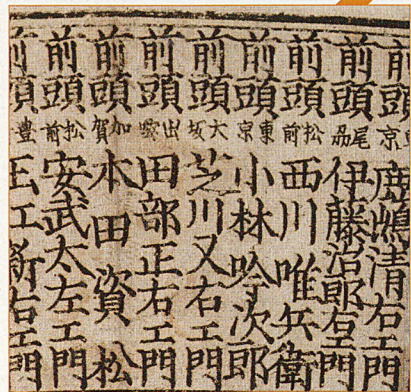 前頭 京 鹿嶋清右エ門
前頭 尾刕 伊藤治郎左エ門
前頭 松前 西川唯兵衛
前頭 東京 小林吟次郎
前頭 大坂 芝川又右エ門
前頭 出雲 田部正右エ門
前頭 加賀 木田資松
前頭 松前 安武太左エ門
前頭 豊 右エ門